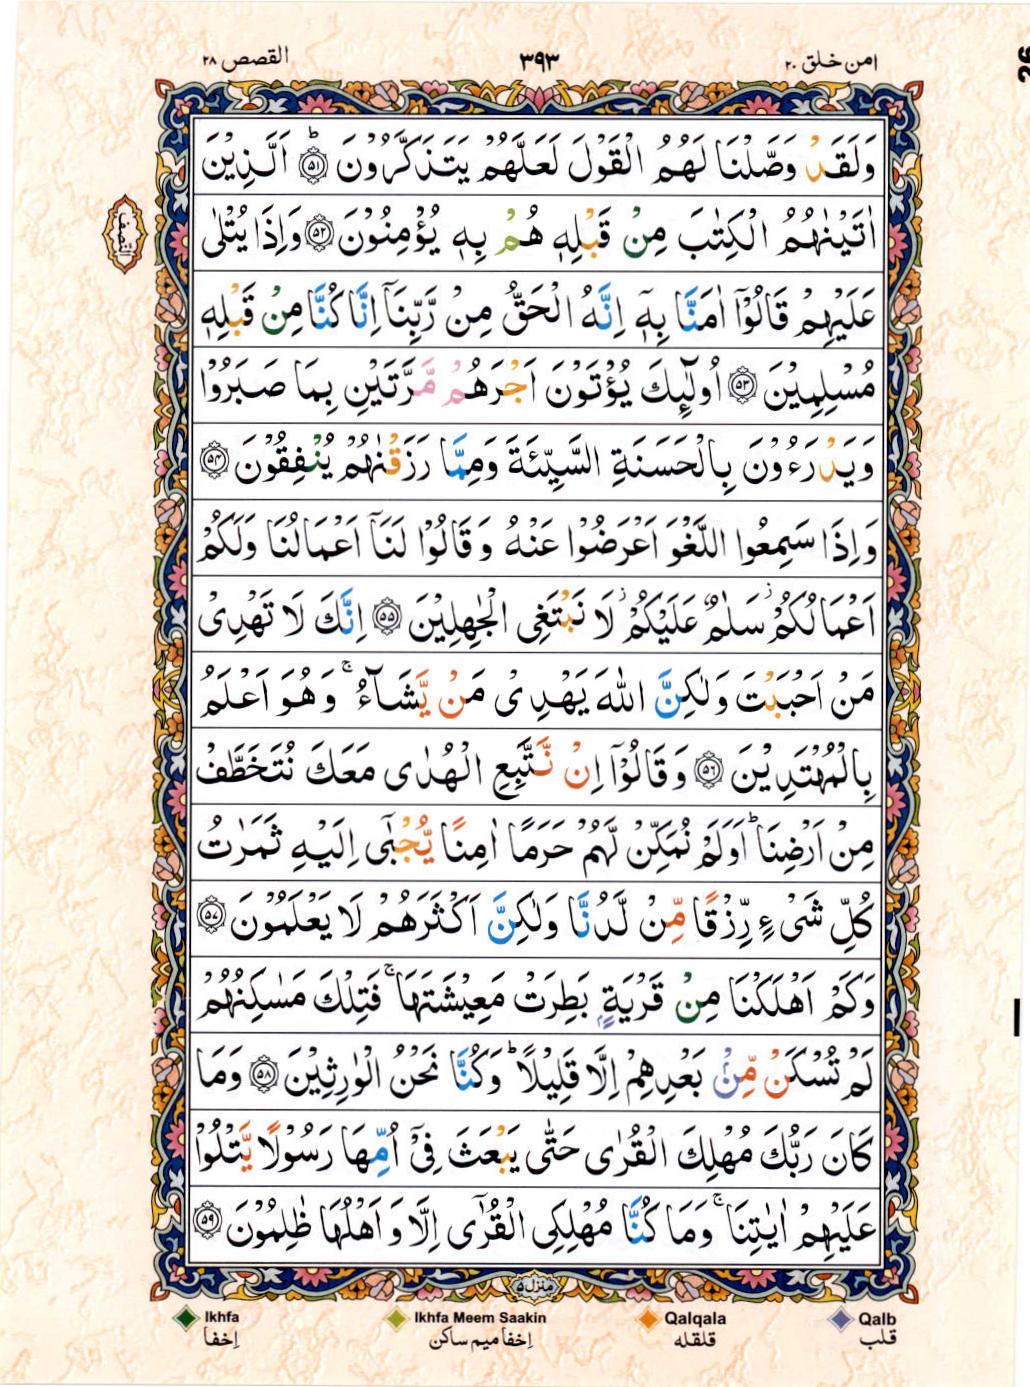 القصص ٢٨
٣٩٣
امن خلق ٢٠
وَلَقَدْ وَصَّلْنَا لَهُمُ الْقَوْلَ لَعَلَّهُمْ يَتَذَكَّرُوْنَ ؕ ﴿۵۱﴾ اَلَّذِيْنَ
اٰتَيْنٰهُمُ الْكِتٰبَ مِنْ قَبْلِهٖ هُمْ بِهٖ يُؤْمِنُوْنَ ﴿۵۲﴾ وَاِذَا يُتْلٰى
عَلَيْهِمْ قَالُوْۤا اٰمَنَّا بِهٖۤ اِنَّهُ الْحَقُّ مِنْ رَّبِّنَاۤ اِنَّا كُنَّا مِنْ قَبْلِهٖ
مُسْلِمِيْنَ ﴿۵۳﴾ اُولٰٓئِكَ يُؤْتَوْنَ اَجْرَهُمْ مَّرَّتَيْنِ بِمَا صَبَرُوْا
وَيَدْرَءُوْنَ بِالْحَسَنَةِ السَّيِّئَةَ وَمِمَّا رَزَقْنٰهُمْ يُنْفِقُوْنَ ﴿۵۴﴾
وَاِذَا سَمِعُوا اللَّغْوَ اَعْرَضُوْا عَنْهُ وَقَالُوْا لَنَاۤ اَعْمَالُنَا وَلَكُمْ
اَعْمَالُكُمْ ؗ سَلٰمٌ عَلَيْكُمْ ؗ لَا نَبْتَغِى الْجٰهِلِيْنَ ﴿۵۵﴾ اِنَّكَ لَا تَهْدِىْ
مَنْ اَحْبَبْتَ وَلٰكِنَّ اللّٰهَ يَهْدِىْ مَنْ يَّشَآءُ ۚ وَهُوَ اَعْلَمُ
بِالْمُهْتَدِيْنَ ﴿۵۶﴾ وَقَالُوْۤا اِنْ نَّتَّبِعِ الْهُدٰى مَعَكَ نُتَخَطَّفْ
مِنْ اَرْضِنَا ؕ اَوَلَمْ نُمَكِّنْ لَّهُمْ حَرَمًا اٰمِنًا يُّجْبٰٓى اِلَيْهِ ثَمَرٰتُ
كُلِّ شَىْءٍ رِّزْقًا مِّنْ لَّدُنَّا وَلٰكِنَّ اَكْثَرَهُمْ لَا يَعْلَمُوْنَ ﴿۵۷﴾
وَكَمْ اَهْلَكْنَا مِنْ قَرْيَةٍۭ بَطِرَتْ مَعِيْشَتَهَا ۚ فَتِلْكَ مَسٰكِنُهُمْ
لَمْ تُسْكَنْ مِّنْۢ بَعْدِهِمْ اِلَّا قَلِيْلًا ؕ وَكُنَّا نَحْنُ الْوٰرِثِيْنَ ﴿۵۸﴾ وَمَا
كَانَ رَبُّكَ مُهْلِكَ الْقُرٰى حَتّٰى يَبْعَثَ فِىْۤ اُمِّهَا رَسُوْلًا يَّتْلُوْا
عَلَيْهِمْ اٰيٰتِنَا ۚ وَمَا كُنَّا مُهْلِكِى الْقُرٰٓى اِلَّا وَاَهْلُهَا ظٰلِمُوْنَ ﴿۵۹﴾
النّصف
منزل ۵
Ikhfa
Ikhfa Meem Saakin
Qalqala
Qalb
اِخفا
اِخفا ميم ساكن
قلقله
قلب